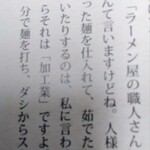 「ラーメン屋の職人さん
んて言いますけどね。人様
った麺を仕入れて、茹でた
いたりするのは、私に言わ
らそれは「加工業」ですよ
分で麺を打ち、ダシからス